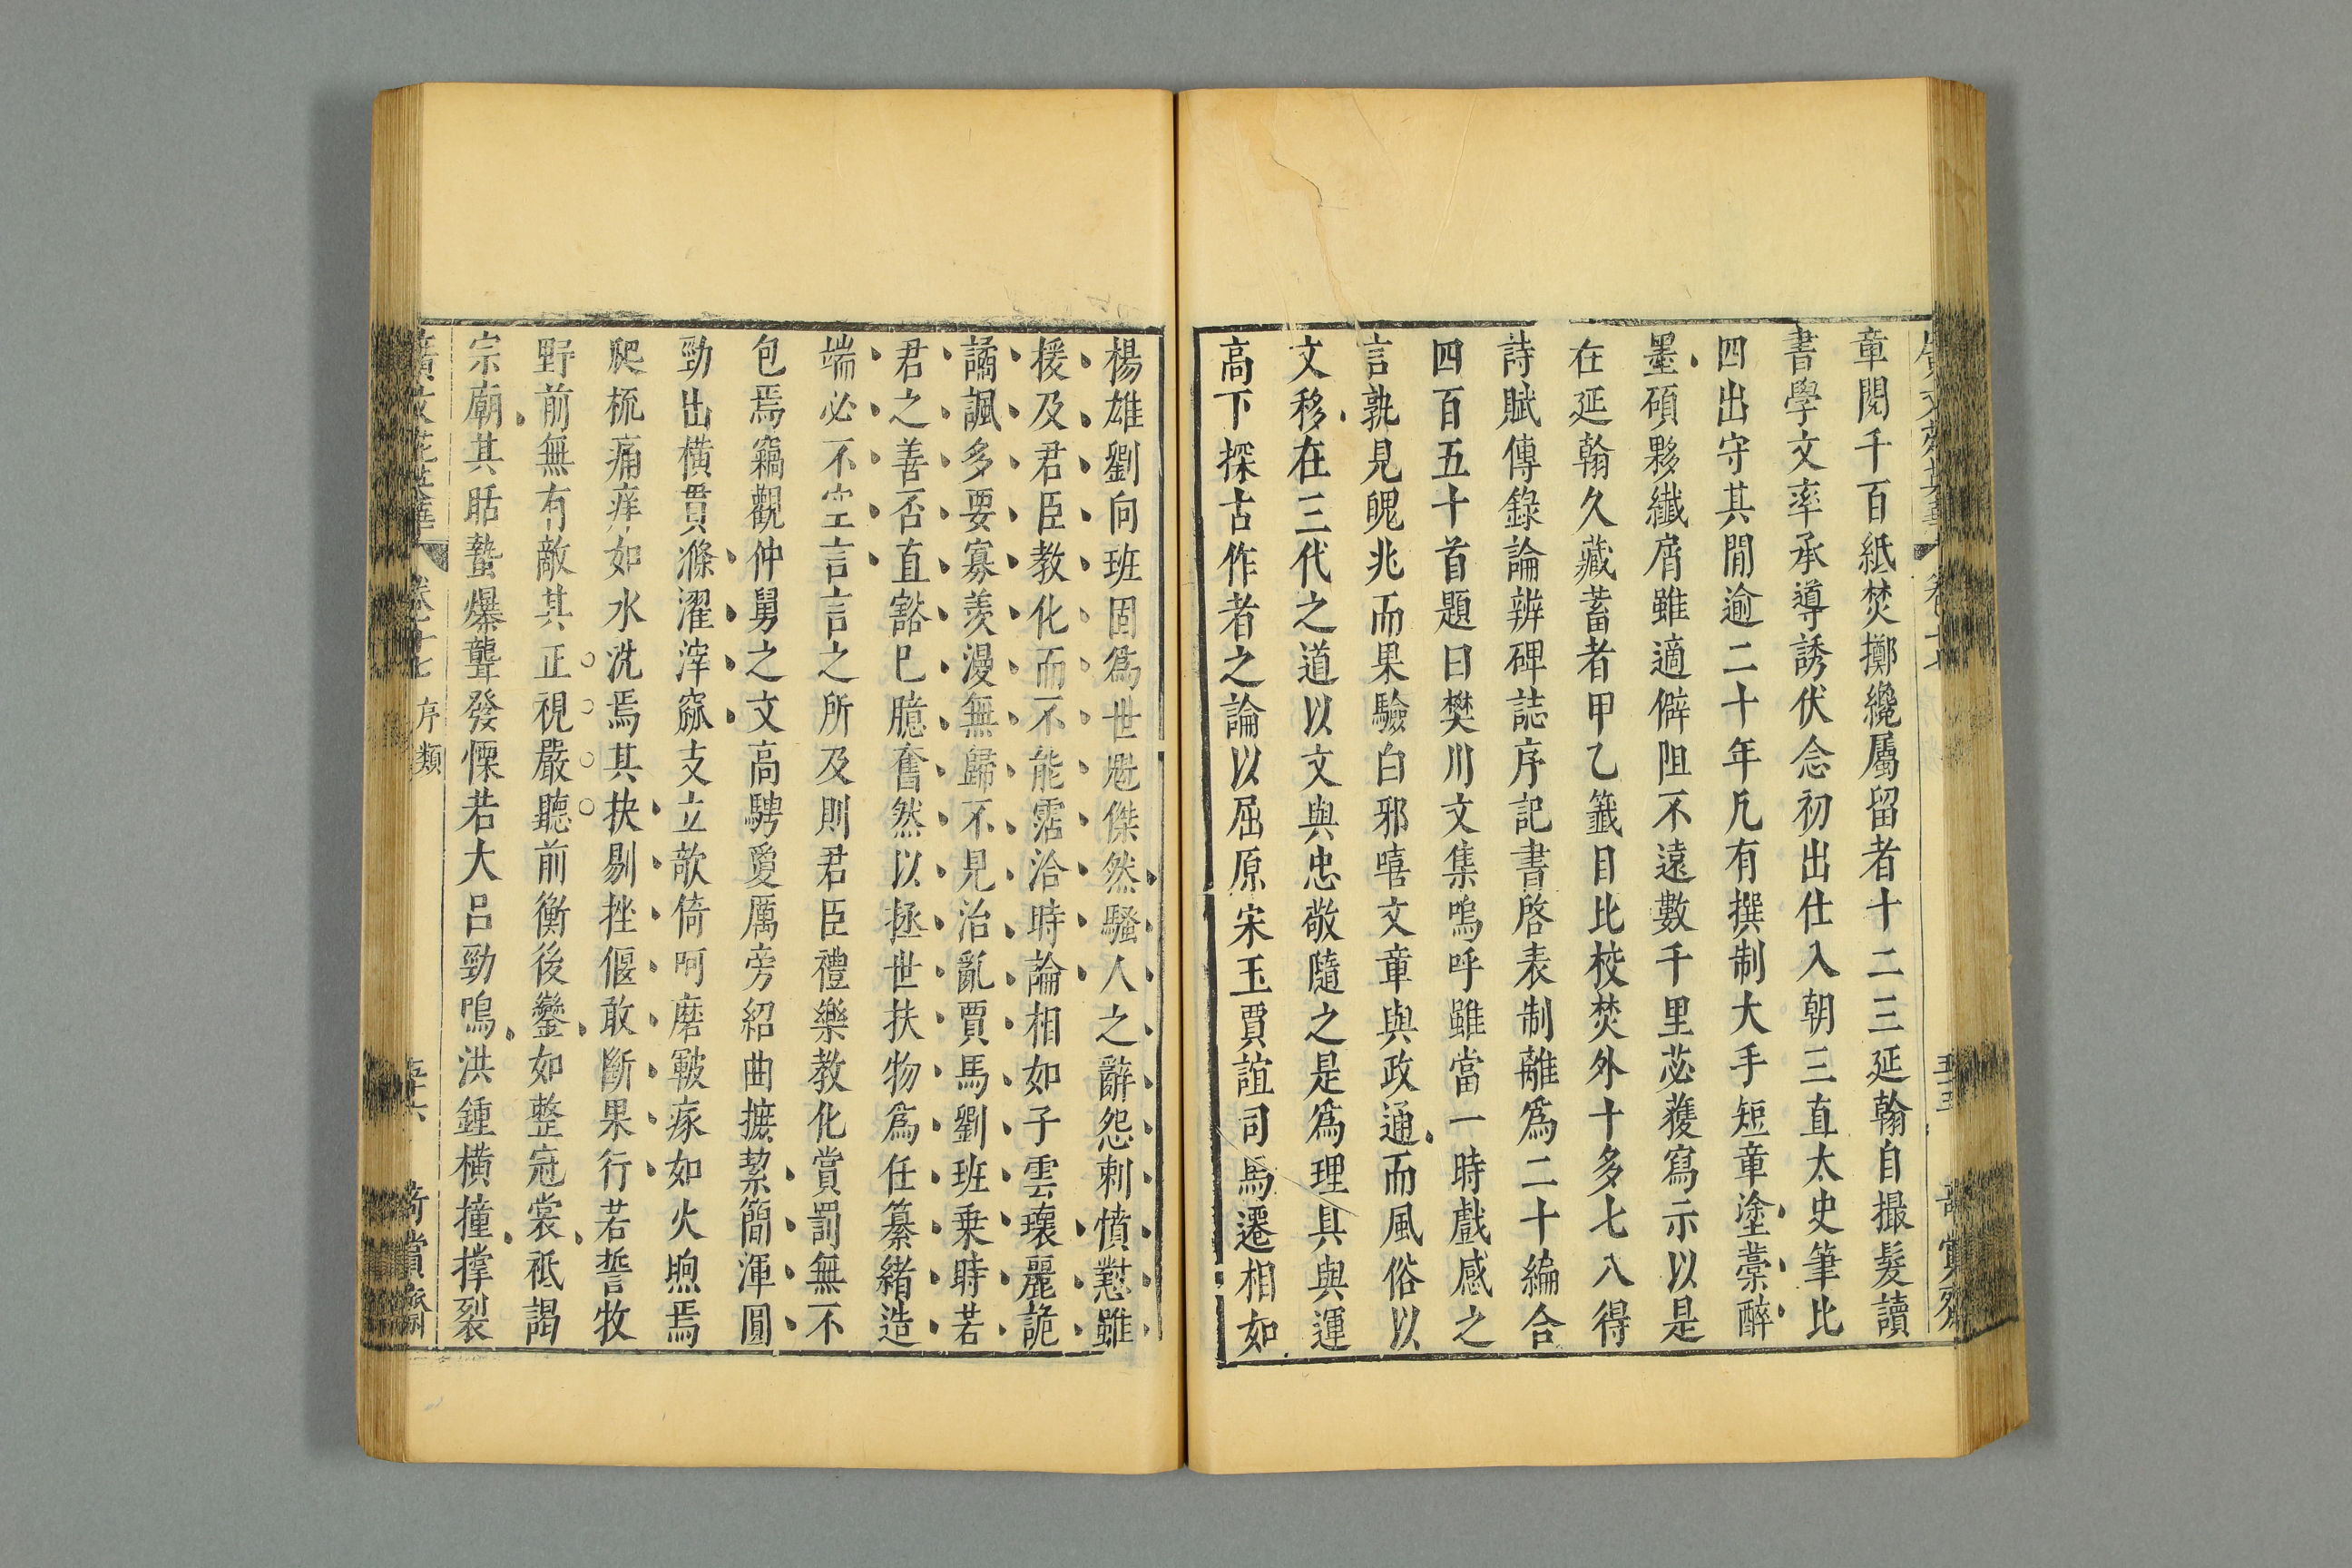 章閱千百紙焚擲纔屬留者十二三延翰自撮髮讀
書學文率承導誘伏念初出仕入朝三直太史筆比
四出守其間逾二十年凡有撰制大手短章塗藁醉
墨碩夥纎屑雖適僻阻不遠數千里苾獲寫示以是
在延翰久藏蓄者甲乙籤目比校焚外十多七八得
詩賦傳錄論辨碑誌序記書啓表制離爲二十編合
四百五十首題曰樊川文集嗚呼雖當一時戲感之
言孰見魄兆而果驗白邪嘻文章與政通而風俗以
文移在三代之道以文與忠敬隨之是爲理具與運
高下探古作者之論以屈原宋玉賈誼司馬遷相如
楊雄劉向班固爲世魁傑然騷人之辭怨刺憤懟雖
援及君臣教化而不能霑洽時論相如子雲瓌麗詭
譎諷多要寡羨漫無歸不見治亂賈馬劉班乗時若
君之善否直豁巳臆奮然以拯世扶物爲任纂緒造
端必不空言言之所及則君臣禮樂教化賞罰無不
包焉竊觀仲舅之文高騁敻厲旁紹曲摭絜簡渾圓
勁出橫貫滌濯滓窳支立欹倚呵磨皸瘃如火煦焉
爬梳痛痒如水洗焉其抉剔挫偃敢斷果行若誓牧
野前無有敵其正視嚴聽前衡後鑾如整冠裳祗謁
宗廟其聒蟄爆聾發慄若大呂勁鳴洪鍾橫撞撑裂
廣文苑英華 卷十七 序類 五六 奇賞齋